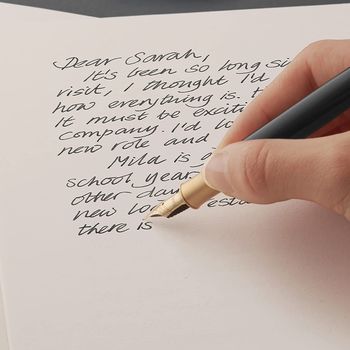 Dear Sarah,
It's been so long si
visit, I thought I'd
how everything is.
It must be exciti
company. I'd lo
new role and
Mild is a
school year
other day
new lo est
there is